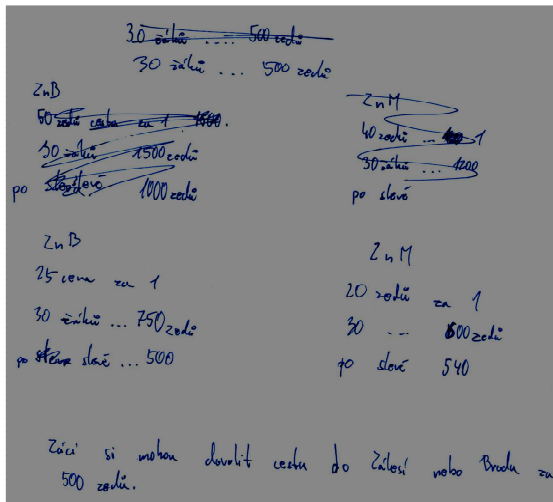 30 žáků .... 500 zedů
30 žáků ... 500 zedů
ZnB
50 zedů cesta za 1 1500.
30 žáků 1500 zedů
po slevě 1000 zedů
ZnM
40 zedů ... 1
30 žáků ... 1200
po slevě
ZnB
25 cena za 1
30 žáků ... 750 zedů
po slevě ... 500
ZnM
20 zedů za 1
30 ... 600 zedů
po slevě 540
Žáci si mohou dovolit cestu do Zálesí nebo Brodu za
500 zedů.